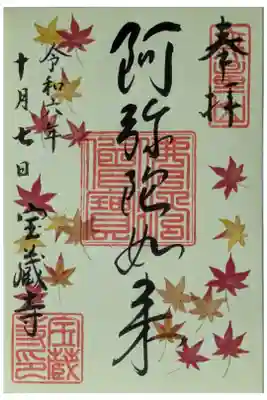 奉拝
阿弥陀如来
令和六年
十月七日
宝蔵寺